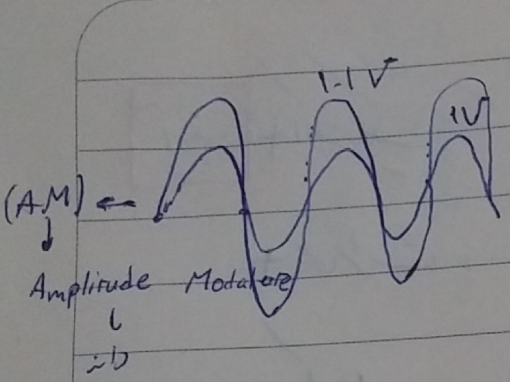 1.1 V
1V
(AM) ←
↓
Amplitude Modalore
↓